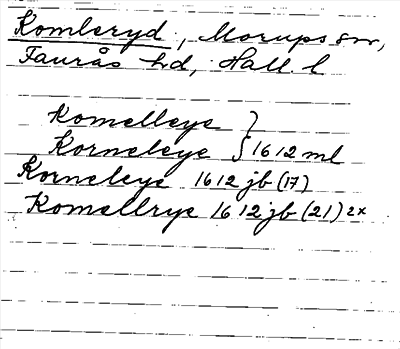 Komleryd, Morups sn,
Faurås hd, Hall. l
Komelleye }
Korneleye } 1612 ml
Korneleye 1612 jb (17)
Komellrye 1612 jb (21) 2x